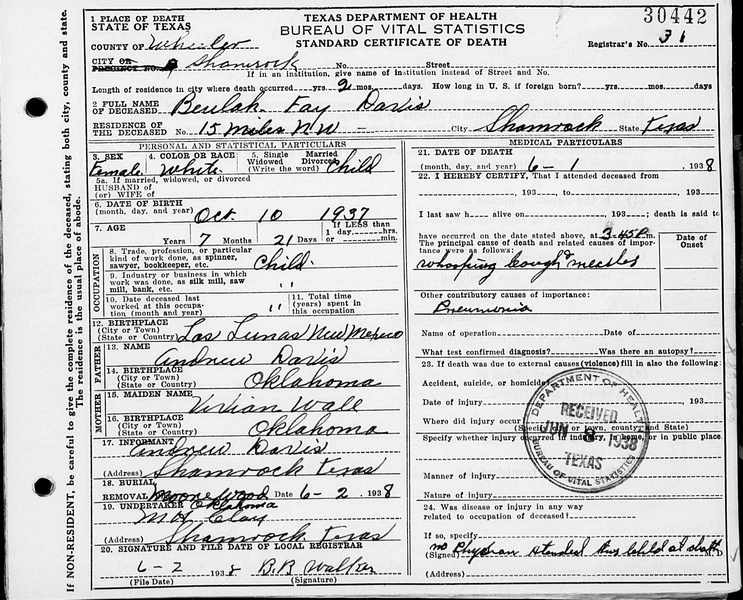 If NON-RESIDENT, be careful to give the complete residence of the deceased, stating both city, county and state.
The residence is the usual place of abode.
1 PLACE OF DEATH
STATE OF TEXAS
COUNTY OF Wheeler
CITY OR
PRECINCT NO. Shamrock No. Street
TEXAS DEPARTMENT OF HEALTH
BUREAU OF VITAL STATISTICS
STANDARD CERTIFICATE OF DEATH
30442
Registrar's No. 31
If in an institution, give name of institution instead of Street and No.
Length of residence in city where death occurred yrs. 2 mos. days. How long in U. S. if foreign born? yrs. mos. days
2 FULL NAME
OF DECEASED. Beulah Fay Davis
RESIDENCE OF
THE DECEASED No. 15 miles NW City Shamrock State Texas
PERSONAL AND STATISTICAL PARTICULARS
3. SEX 4. COLOR OR RACE 5. Single Married
Widowed Divorced
(Write the word)
Female White Child
5a. If married, widowed, or divorced
HUSBAND of
(or) WIFE of
6. DATE OF BIRTH
(month, day, and year) Oct 10 1937
7. AGE
Years 7 Months 21 Days
If LESS than
1 day, hrs.
or min.
OCCUPATION
8. Trade, profession, or particular
kind of work done, as spinner,
sawyer, bookkeeper, etc. Child
9. Industry or business in which
work was done, as silk mill, saw
mill, bank, etc. "
10. Date deceased last
worked at this occupa-
tion (month and year)
11. Total time
(years) spent in
this occupation "
12. BIRTHPLACE
(City or Town)
(State or Country) Los Lunas New Mexico
FATHER
13. NAME
Andrew Davis
14. BIRTHPLACE
(City or Town)
(State or Country) Oklahoma
MOTHER
15. MAIDEN NAME
Vivian Wall
16. BIRTHPLACE
(City or Town)
(State or Country) Oklahoma
17. INFORMANT
Andrew Davis
(Address) Shamrock Texas
18. BURIAL
REMOVAL Moonewood Date 6-2 1938
Oklahoma
19. UNDERTAKER
M H Clay
(Address) Shamrock Texas
20. SIGNATURE AND FILE DATE OF LOCAL REGISTRAR
6-2 1938 B.B Walker
(File Date) (Signature)
MEDICAL PARTICULARS
21. DATE OF DEATH
(month, day, and year) 6-1 1938
22. I HEREBY CERTIFY, That I attended deceased from
, 193 to , 193
I last saw h alive on 193 ; death is said to
have occurred on the date stated above, at 3:45 P.m.
The principal cause of death and related causes of impor-
tance were as follows:
Date of
Onset
Whooping Cough & measles
Other contributory causes of importance:
Pneumonia
Name of operation Date of
What test confirmed diagnosis? Was there an autopsy?
23. If death was due to external causes (violence) fill in also the following:
Accident, suicide, or homicide
Date of injury , 193
Where did injury occur
(Specify city or town, county and State)
Specify whether injury occurred in industry, in home, or in public place
Manner of injury
Nature of injury
DEPARTMENT OF HEALTH
RECEIVED
JUN 1938
TEXAS
BUREAU OF VITAL STATISTICS
24. Was disease or injury in any way
related to occupation of deceased?
If so, specify
no Physician attended this child at death
M.D.
(Address)